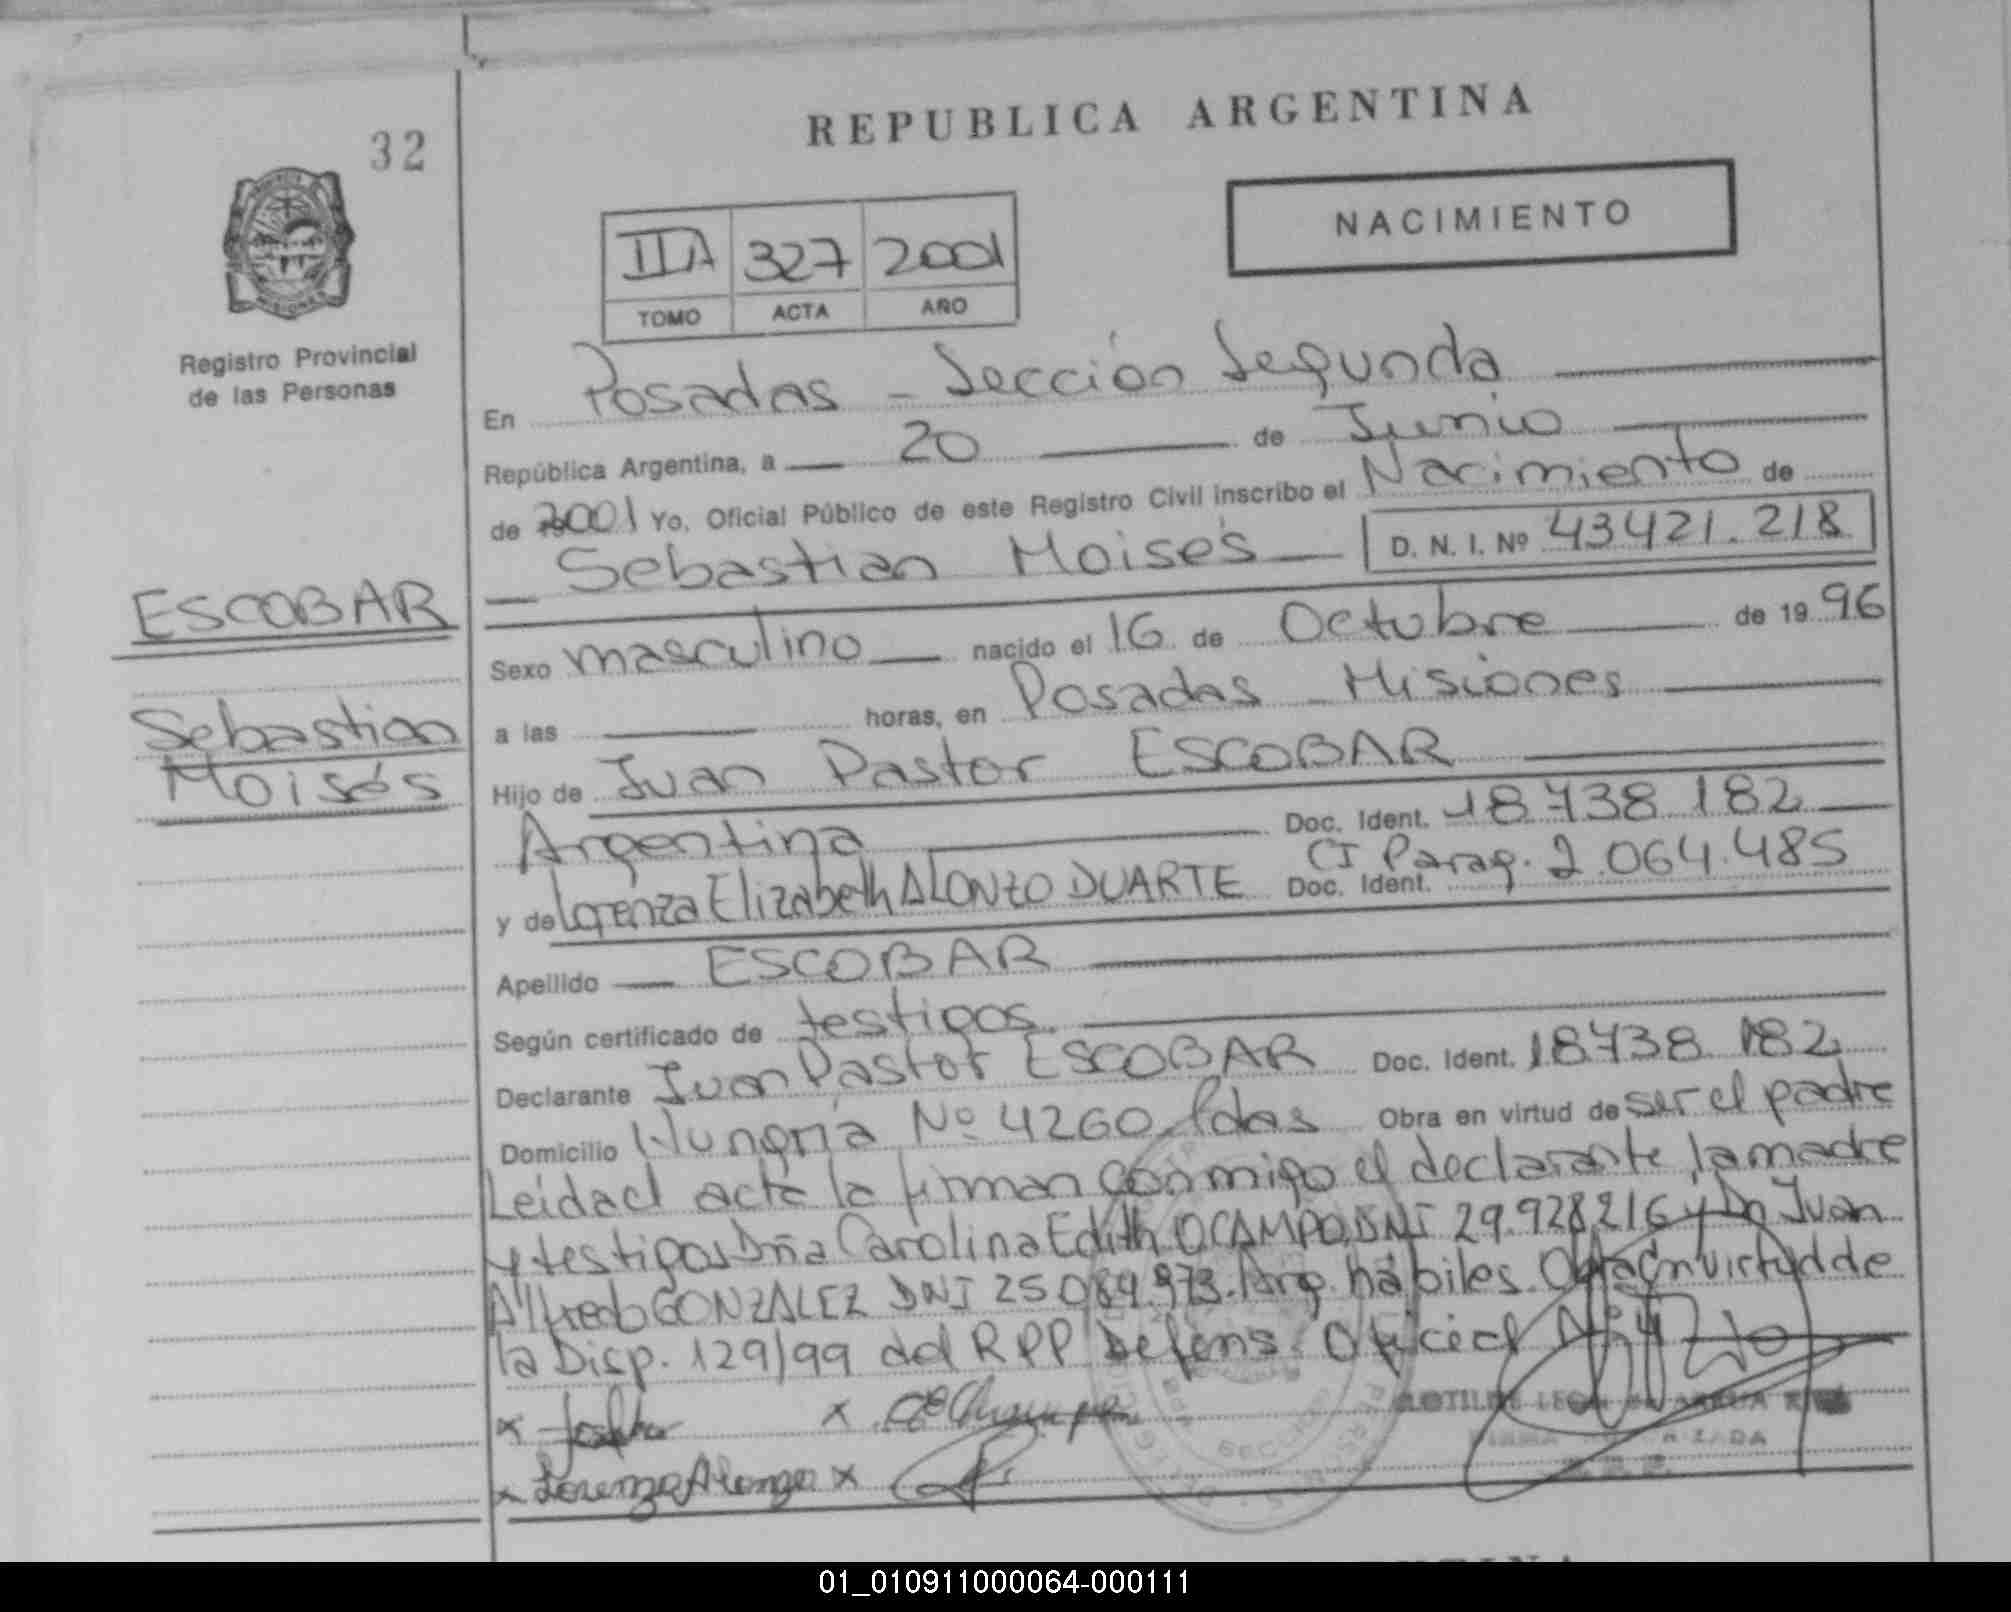 REPUBLICA ARGENTINA
32
NACIMIENTO
IIA 327 2001
TOMO ACTA AÑO
Registro Provincial
de las Personas
En Posadas - Sección Segunda
República Argentina, a 20 de Junio
de 2001 Yo, Oficial Público de este Registro Civil inscribo el Nacimiento de
Sebastian Moisés D. N. I. Nº 43421.218
ESCOBAR
Sebastian
Moisés
Sexo masculino nacido el 16 de Octubre de 1996
a las horas, en Posadas - Misiones
Hijo de Juan Pastor ESCOBAR
Argentina Doc. Ident. 18738182
y de Lorenza Elizabeth ALONZO DUARTE Doc. Ident. CI Parag. 2.064.485
Apellido ESCOBAR
Según certificado de testigos.
Declarante Juan Pastor ESCOBAR Doc. Ident. 18738182
Domicilio Hungria Nº 4260 Pdas Obra en virtud de ser el padre
Leida el acta la firman conmigo el declarante, la madre
y testigos Dña Carolina Edith OCAMPO DNI 29.928.216 y Dn Juan
Alfredo GONZALEZ DNI 25.084.973. Arg. hábiles. Obra en virtud de
la Disp. 129/99 del RPP Defens. Oficial Nº 4
x x
x Lorenza Alonzo x
01_010911000064-000111